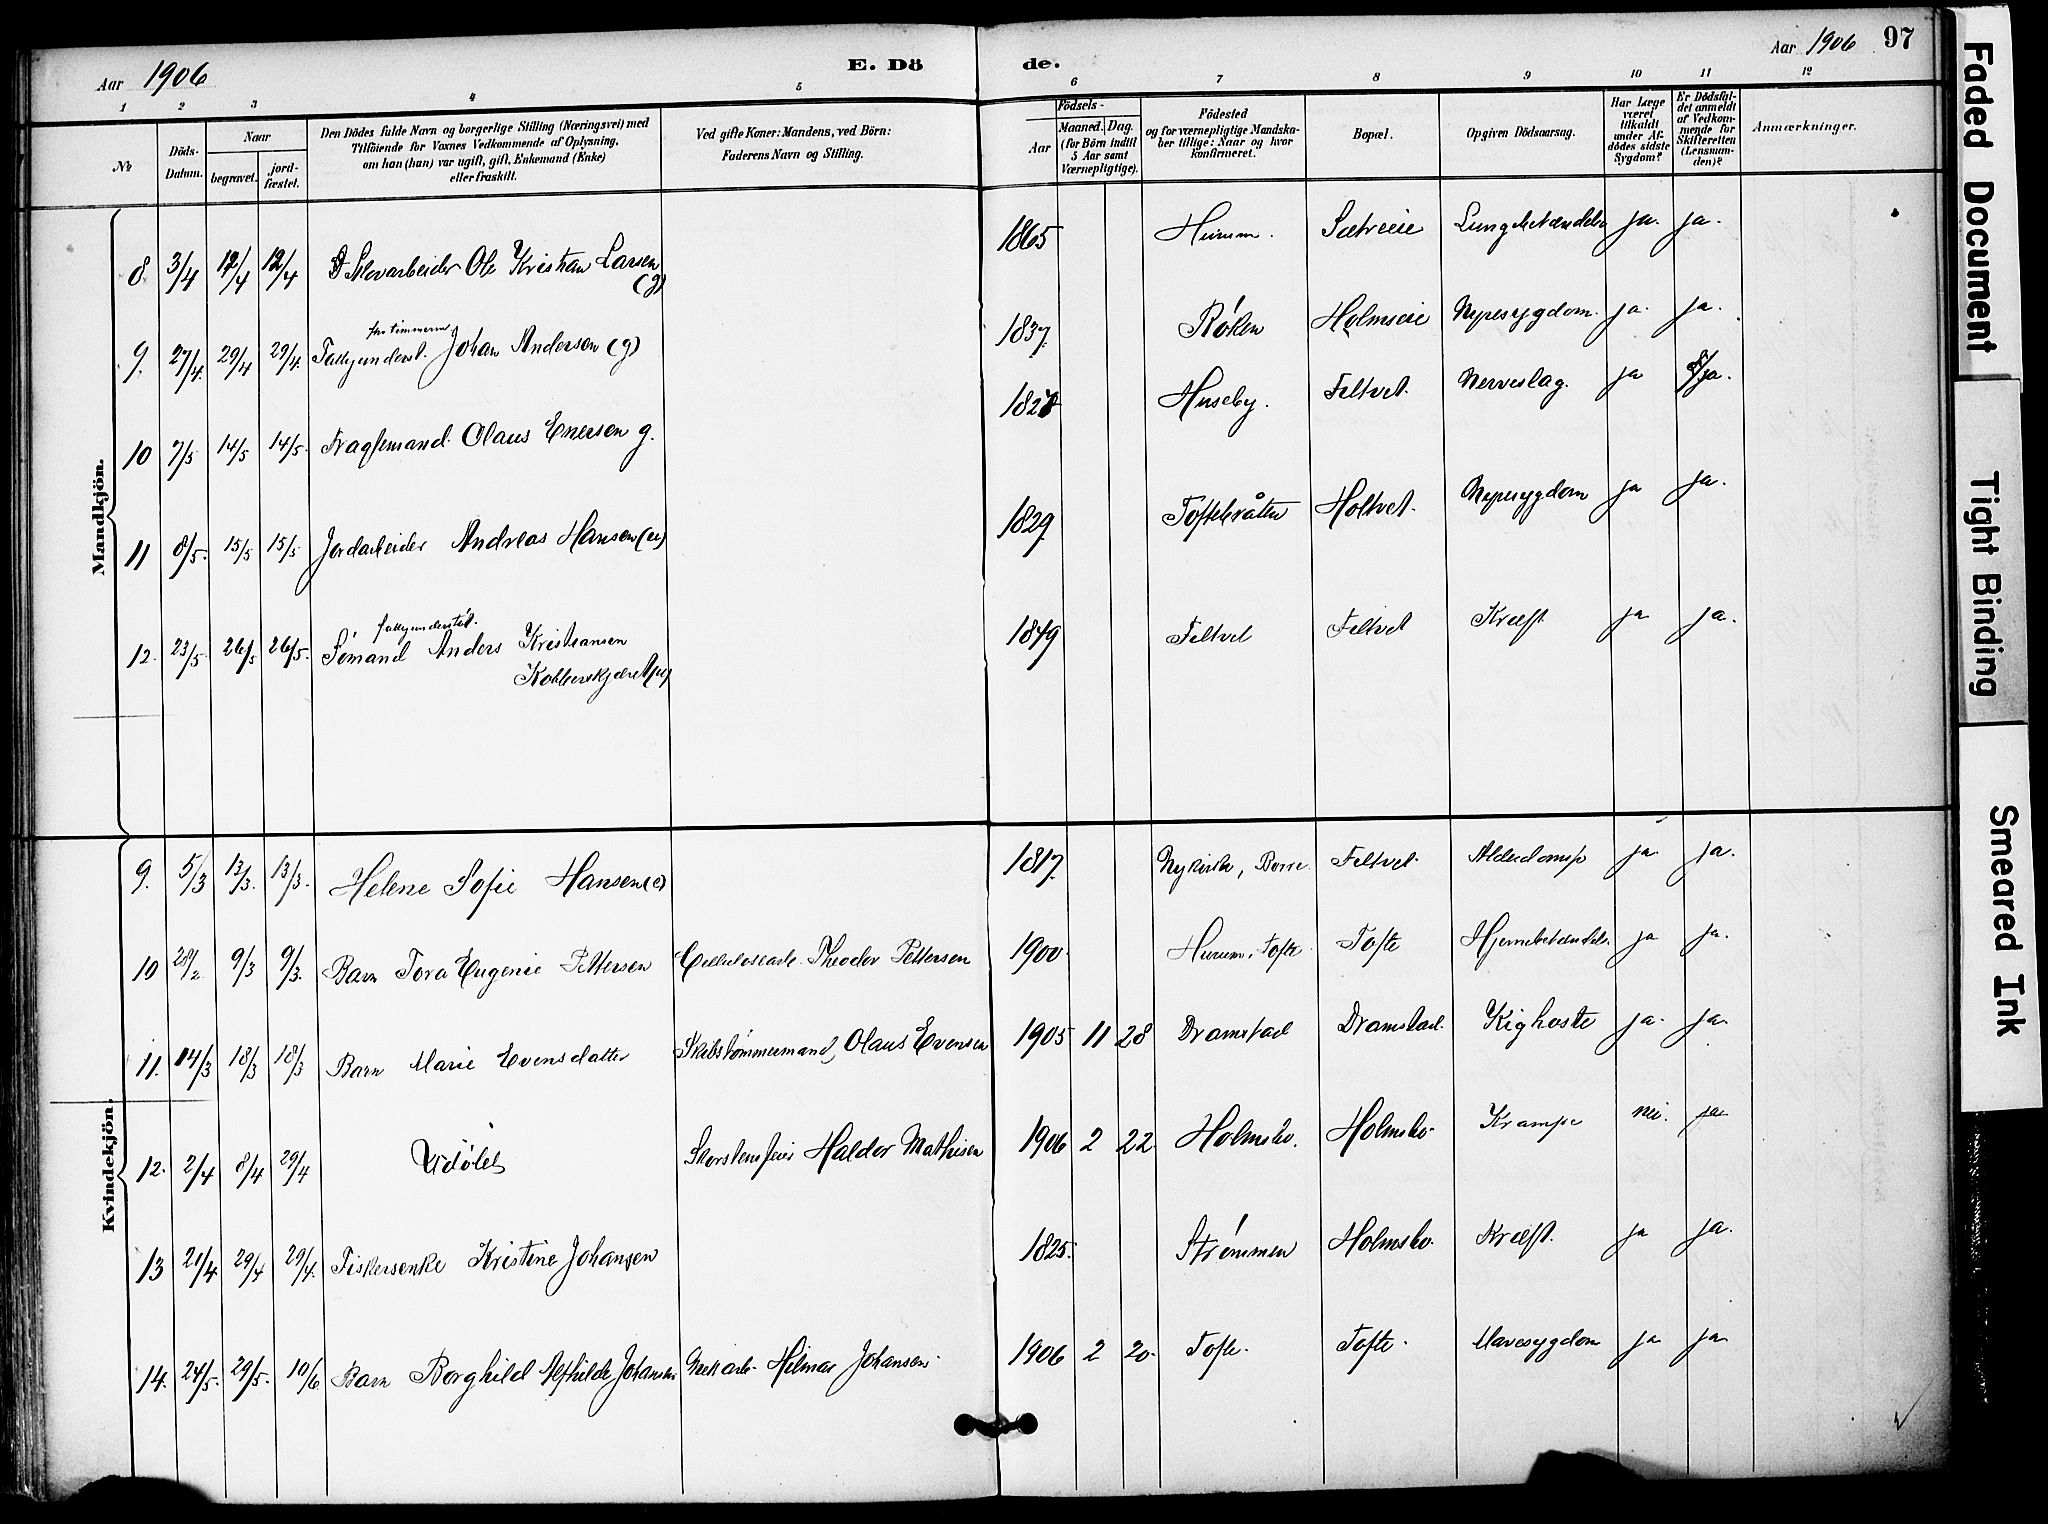 Aar 1906
E. Dö
de.
Aar 1906
97
1 2 3 4 5 6 7 8 9 10 11 12
No
Döds-Datum.
Naar
begravet.
jord-fæstet.
Den Dödes fulde Navn og borgerlige Stilling (Næringsvei) med
Tilföiende for Voxnes Vedkommende af Oplysning,
om han (hun) var ugift, gift, Enkemand (Enke)
eller fraskilt.
Ved gifte Koner: Mandens, ved Börn:
Faderens Navn og Stilling.
Födsels-
Aar
Maaned. Dag.
(for Börn indtil
5 Aar samt
Værnepligtige).
Födested
og for værnepligtige Mandska-
ber tillige: Naar og hvor
konfirmeret.
Bopæl.
Opgiven Dödsaarsag.
Har Læge
været
tilkaldt
under Af-
dödes sidste
Sygdom?
Er Dödsfal-
det anmeldt
af Vedkom-
mende for
Skifteretten
(Lensman-
den)?
Anmærkninger.
Mandkjön.
8 3/4 12/4 12/4 Skovarbeider Ole Kristian Larsen (g) 1865 Hurum. Sætreeie Lungebetændelse ja. ja.
9. 27/4. 29/4 29/4. Fattigunderst. Johan Anderson (g) 1837 Røken Holmseie Nyresygdom. ja. ja.
10 7/5 14/5 14/5. Olaus Enersen g. Huseby. Feltvet. Nerveslag. ja ja.
11 8/5. 15/5 15/5 Jordarbeider Andreas Hansen 1829 Toftebråten Holtvet. Nyresygdom ja ja.
fattigunderstøt.
12. 23/5. 26/5 26/5. Sømand Anders Kristiansen 1849 Feltvet Feltvet Kræft ja ja.
Kvindekjön.
9. 5/3 13/3. 13/3. Helene Sofie Hansen (e) 1817. Nykirke, Borre. Feltvet. Alderdomsp ja ja.
10 9/3 9/3. Barn Tora Eugenie Pettersen Cellulosearb. Theodor Pettersen 1900. Hurum, Tofte Tofte Hjernebetændels. ja ja.
11. 14/3 18/3 18/3 Barn Marie Evensdatter Skibstømmermand, Olaus Evensen 1905 11 28 Dramstad Dramstad. Kighoste ja. ja.
12. 2/4 8/4 29/4 Udøbt Skorstensfeier Haldor Mathisen 1906 2 22 Holmsbo. Holmsbo. Krampe nei. ja
13 21/4. 29/4 29/4. Fiskersenke Kristine Johansen 1825. Strømmen Holmsbo. Kræft. ja ja.
14. 24/5. 29/5. 10/6 Barn Borghild Alfhilde Johansen Hilmar Johansen. 1906 2 20. Tofte. Tofte. Mavesygdom ja ja
Faded Document
Tight Binding
Smeared Ink